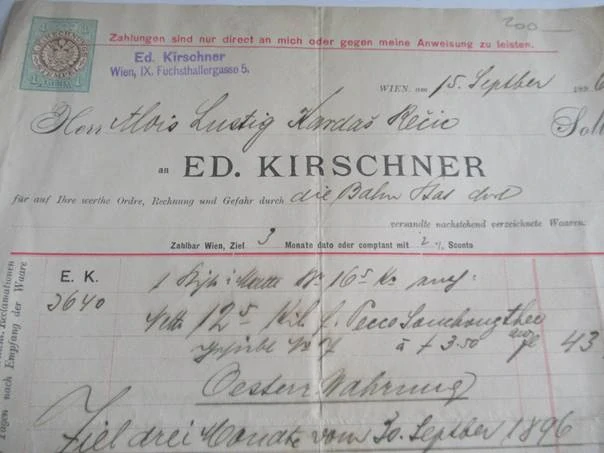 200
Zahlungen sind nur direct an mich oder gegen meine Anweisung zu leisten.
Ed. Kirschner
Wien, IX. Fuchsthallergasse 5.
WIEN, am 15. Septber 1896
Herr Alois Lustig Kardaš Rečic Soll
an ED. KIRSCHNER
für auf Ihre werthe Ordre, Rechnung und Gefahr durch die Bahn
versandte nachstehend verzeichnete Waaren.
Zahlbar Wien, Ziel 3 Monate dato oder comptant mit 2 % Sconto
E. K. 1 16 5
3640 Netto 12 5 Kil. f. Pecco Souchong thee
à f 3.50 43
Oesterr. Währung
Ziel drei Monate vom 30. Septber 1896
Reclamationen
Tagen nach Empfang der Waare